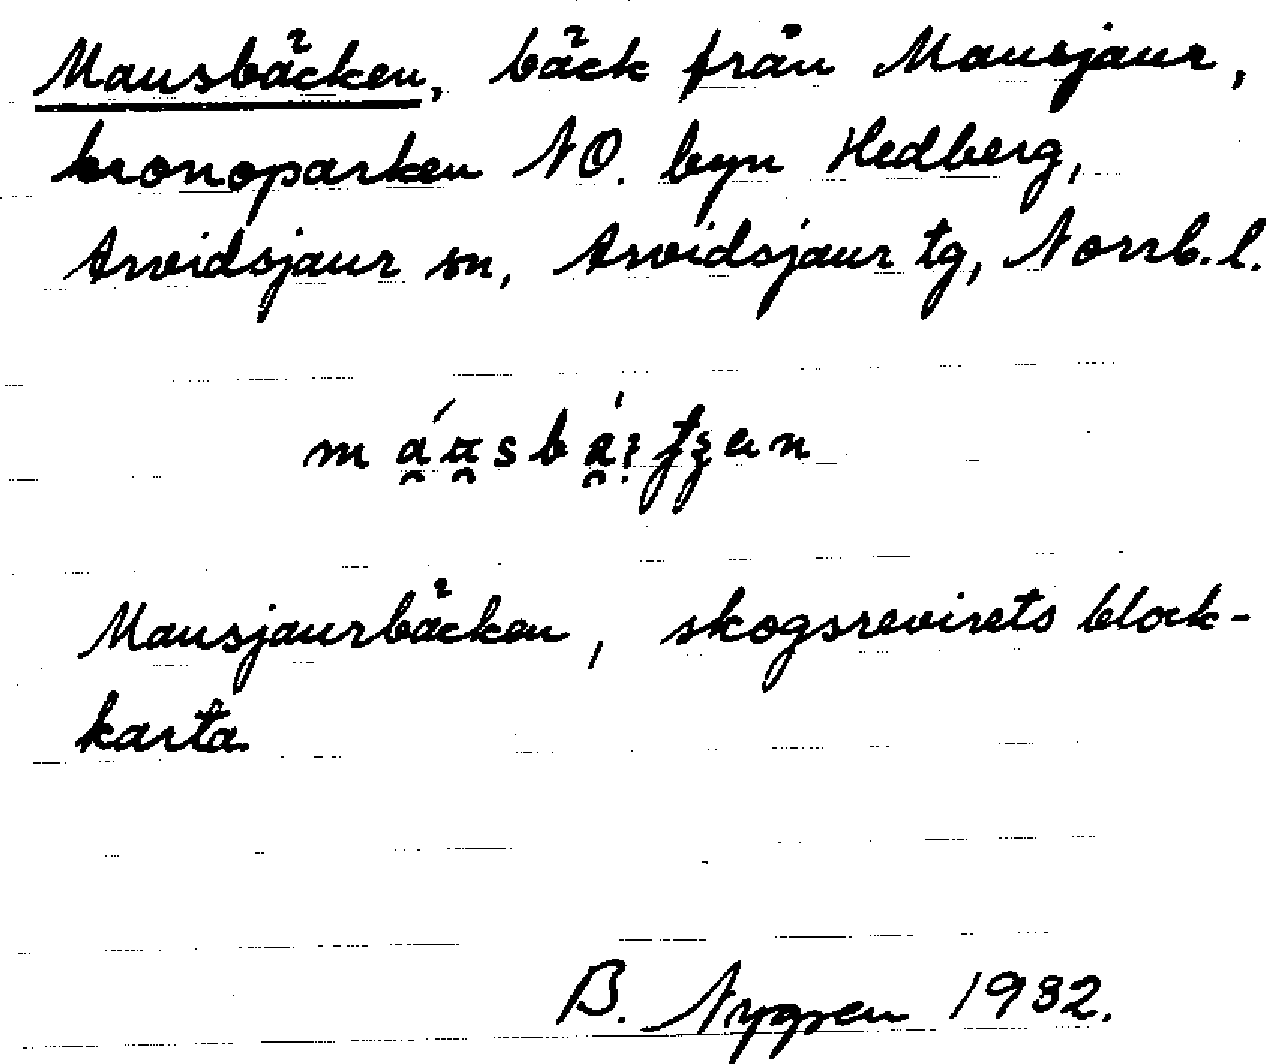 Mausbäcken, bäck från Mausjaur,
kronoparken NO. byn Hedberg,
Arvidsjaur sn, Arvidsjaur tg, Norrb. l.
Mausjaurbäcken, skogsrevirets block-
karta.
B. Nygren 1932.